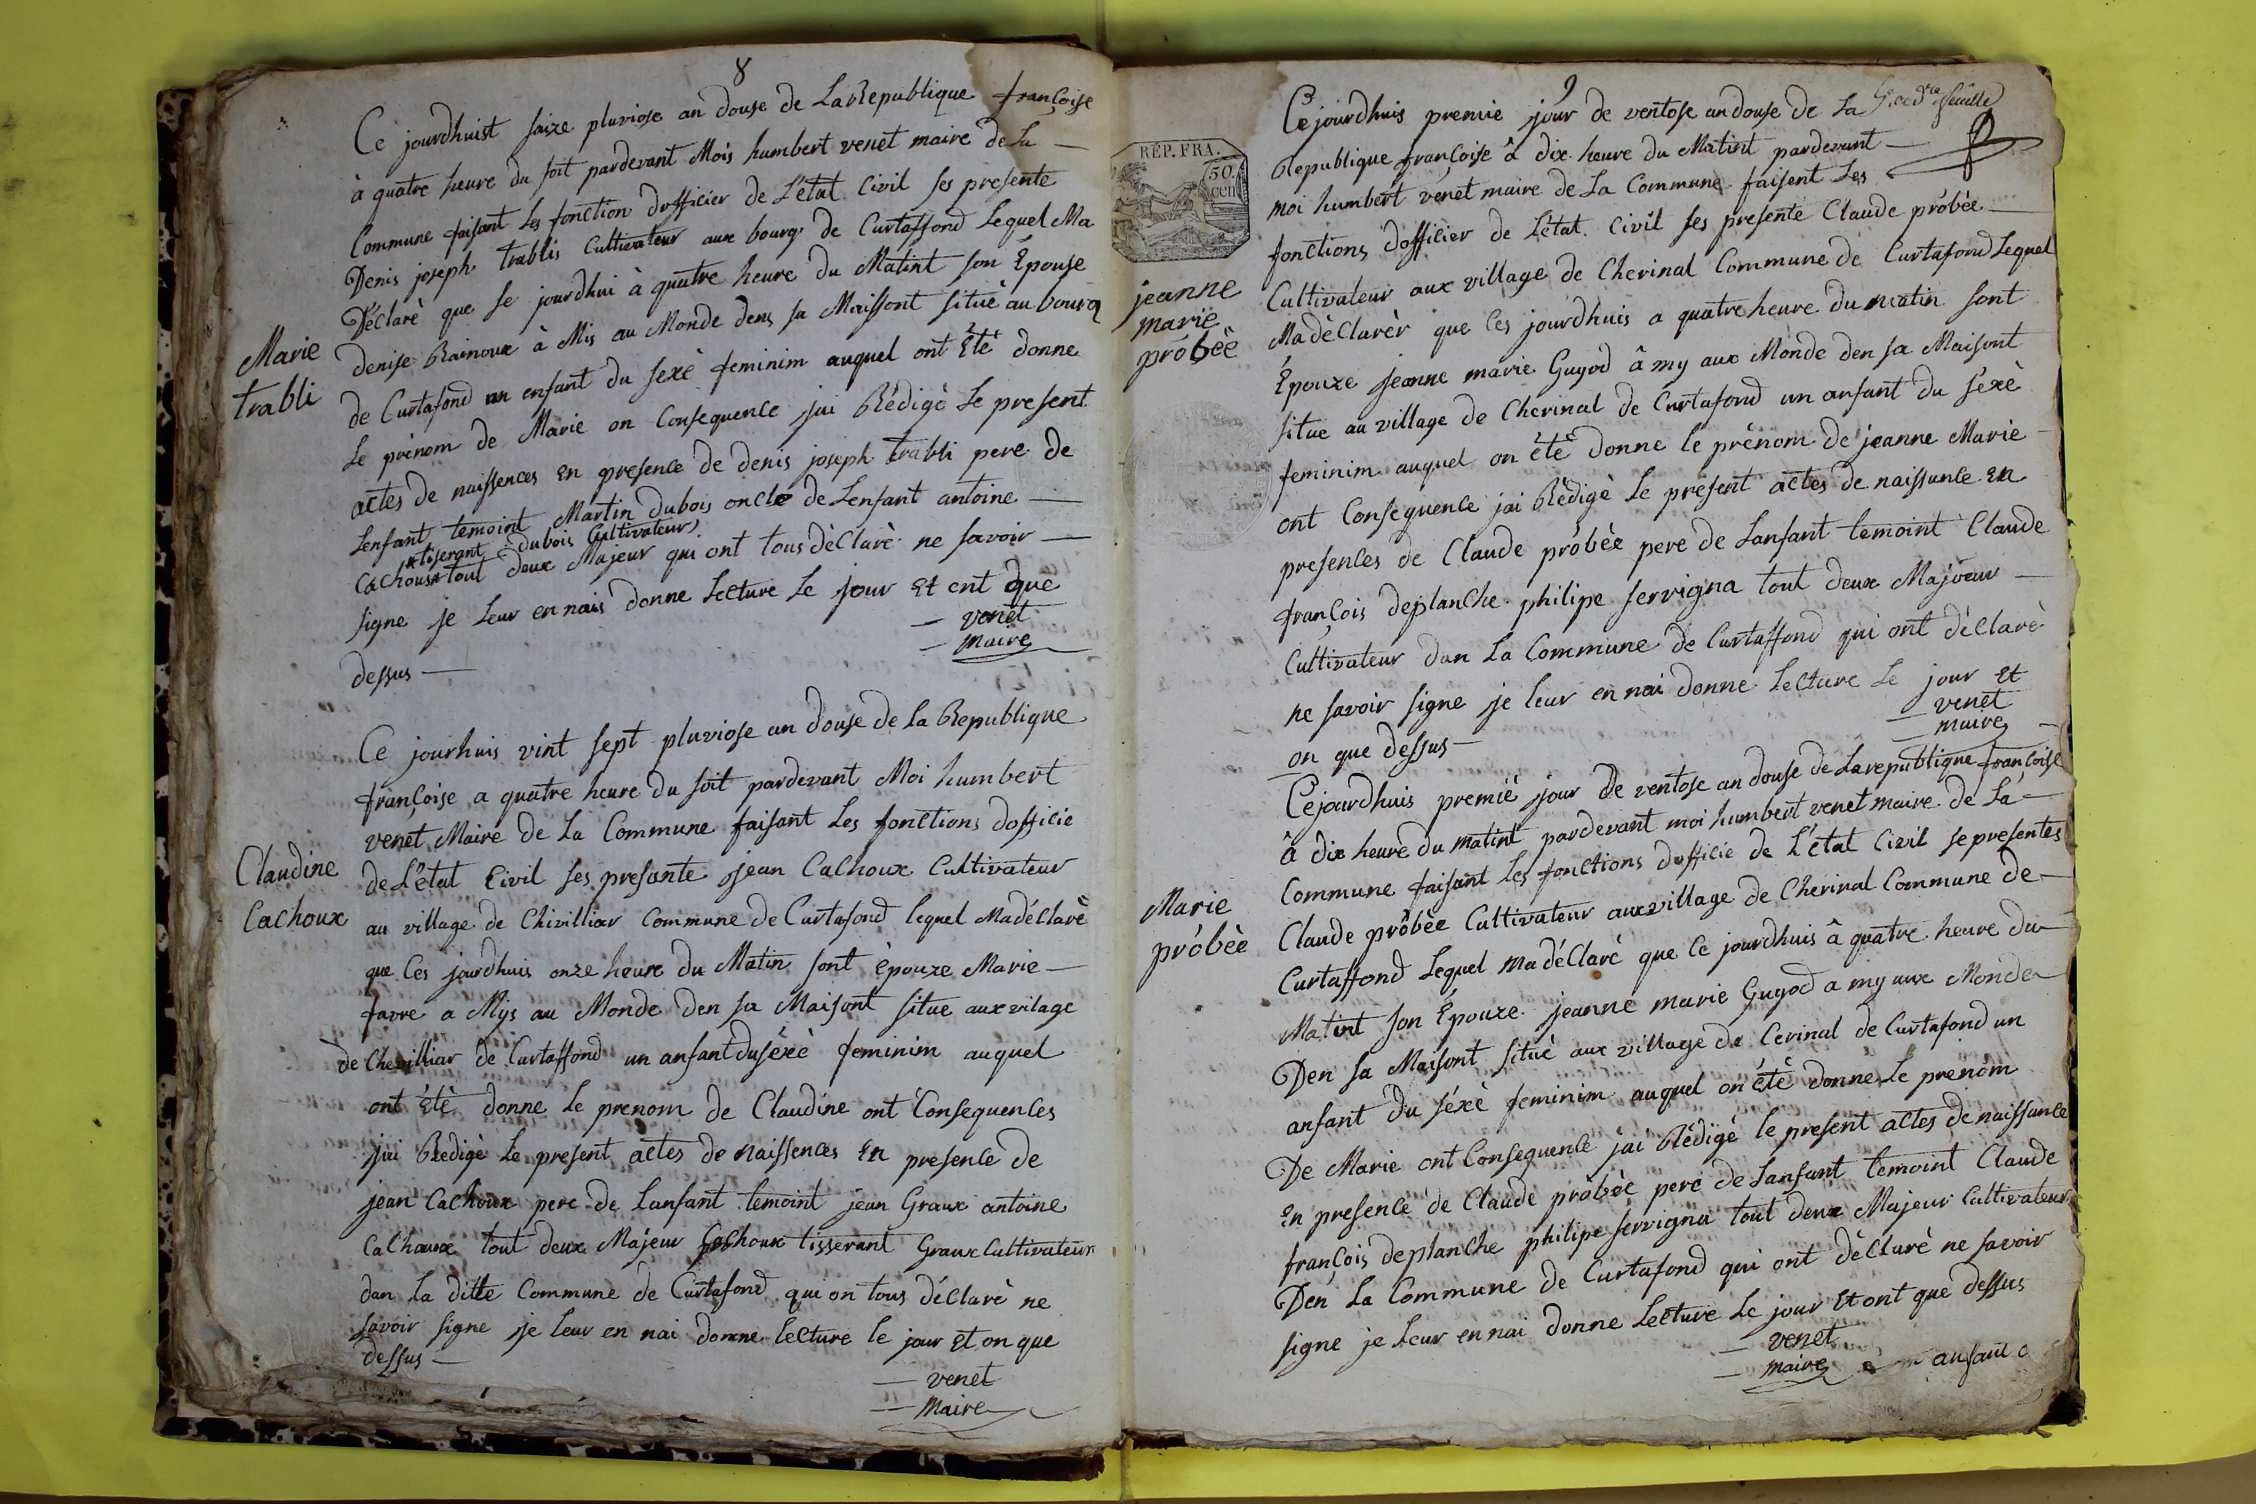 8
Ce jourdhuist saize pluviose an douse de La Republique françoise
à quatre heure du soit pardevant Mois humbert venet maire de La
Commune faisant Les fonction dofficier de L'état Civil ses presente
Denis joseph trablis Cultivateur aux bourg de Curtaffond Lequel Ma
Déclarè que se jourdhui à quatre heure du Matint son Épouse
denise Rainoux à Mis au Monde dens sa Maissont situè au bourg
de Curtafond un enfant du sexè feminim auquel ont Étè donne
Le prénom de Marie on Consequence jai Rédigè Le present
actes de naissences en presence de denis joseph trabli pere de
Lenfant temoint Martin dubois oncle de Lenfant antoine
tiserant dubois Cultivateur
Cachoux tout deux Majeur qui ont tous dèclarè ne savoir
signe je Leur en nais donne Lecture Le jour Et ent que
dessus
venet
Maire
Marie
trabli
Ce jourhuis vint sept pluviose an douse de La Republique
françoise a quatre heure du soit pardevant Moi humbert
venet Maire de La Commune faisant Les fonctions dofficie
de L'état Civil ses presante jean Cachoux Cultivateur
au village de Chivilliar Commune de Curtafond lequel Madéclarè
que Ces jourdhuis onze heure du Matin sont èpouze Marie
favre a Mys au Monde den sa Maisont situe aux vilage
de Chevilliar de Curtaffond un anfant du séxè feminim auquel
ont étè donne Le prenom de Claudine ont Consequences
jai Redigè Le present actes de naissences En presence de
jean Cachoux pere de Lanfant temoint jean Graux antoine
Cachoux tout deux Májeur Cachoux tisserant Graux Cultivateur
dan La ditte Commune de Curtafond qui on tous déclarè ne
savoir signe je leur en nai donne lecture le jour Et on que
dessus
venet
Maire
Claudine
Cachoux
9
feuille
Cejourdhuis premie jour de ventose an douse de La
Republique françoise â dix heure du Matint pardevant
moi humbert vénet maire de La Commune faisent Les
fonctions dofficier de L'état Civil ses presente Claude próbèe
Cultivateur aux village de Cherinal Commune de Curtafond Lequel
Madèclarèr que Ces jourdhuis a quatre heure du matin sont
Épouze jeanne marie Guyod â my aux Monde den sa Maisont
situe au village de Cherinal de Curtafond un anfant du sexè
feminim auquel on étè donne le prènom de jeanne Marie
ont Consequence jai Rèdigè Le present actes de naissance En
presences de Claude próbèe pere de Lanfant temoint Claude
françois deplanche philipe servigna tout deux Majoeur
Cultivateur dan La Commune de Curtaffond qui ont déclarè
ne savoir signe je leur en nai donne Lecture Le jour et
on que dessus
venet
maire
REP. FRA.
50
cen
jeanne
marie
próbèe
Cejourdhuis premié jour De ventose an douse de Larepublique françoise
â dix heure du matint pardevant moi humbert venet maire de La
Commune faisant Les fonctions dofficie de L'état Civil se presentes
Claude prôbèe Cultivateur aux village de Cherinal Commune de
Curtaffond Lequel ma déclaré que Ce jourdhuis â quatre heure du
Matint son Épouze jeanne marie Guyod a my aux Monde
Den sa Maisont situè aux village de Cerinal de Curtafond un
anfant du séxè feminim auquel on étè donne Le prenom
De Marie ont Consequence jai Rédigè le present actes de naissance
En presence de Claude próbèe perè de Lanfant temoint Claude
françois deplanche philipe servigna tout deux Majeur Cultivateur
Den La Commune de Curtafond qui ont déclarè ne savoir
signe je Leur en nai donne Lecture Le jour Et ont que dessus
venet
maire
Marie
próbèe